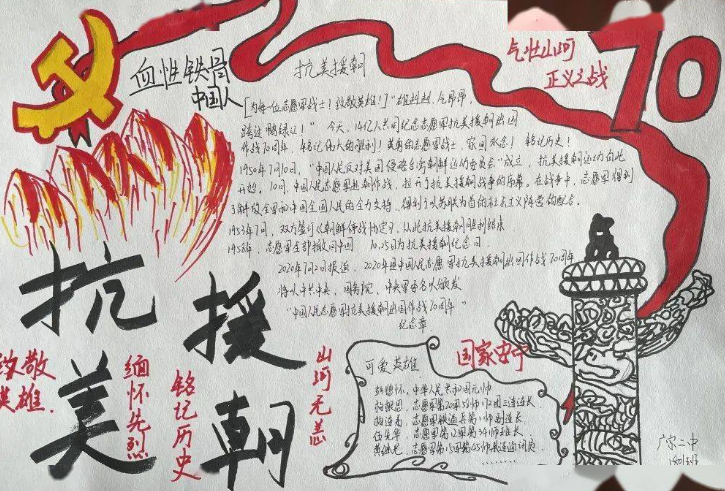 血性铁骨
中国人
抗美援朝
气壮山河
正义之战
70
[为每一位志愿军战士！致敬英雄！]"雄赳赳，气昂昂，
跨过鸭绿江！" 今天，14亿人共同纪念志愿军抗美援朝出国
作战70周年，铭记伟大的胜利！
铭记历史！
1950年7月10日，"中国人民反对美国侵略台湾朝鲜运动委员会"成立，抗美援朝运动自此
开始。10月，中国人民志愿军赴朝作战，拉开了抗美援朝战争的序幕。在战争中，志愿军得到
了解放全国的中国全国人民的全力支持，得到了以苏联为首的社会主义阵营的配合。
1953年7月，双方签订《朝鲜停战协定》，从此抗美援朝胜利结束
1958年，志愿军全部撤回中国 10.25日为抗美援朝纪念日
2020年7月2日报道，2020年是中国人民志愿军抗美援朝出国作战70周年
将以中共中央、国务院、中央军委名义颁发
"中国人民志愿军抗美援朝出国作战70周年"
纪念章
抗
美
援
朝
致敬
英雄.
缅怀先烈
铭记历史
山河无恙
国家安宁
可爱英雄
彭德怀，中华人民共和国元帅